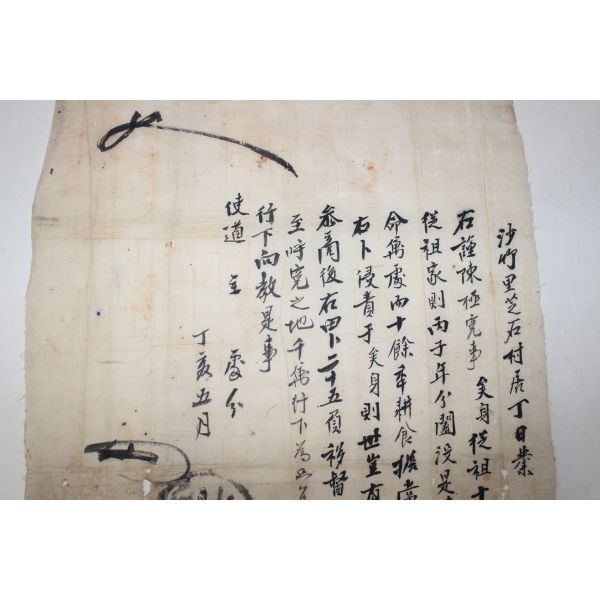 沙竹里芝石村居丁日業
右謹陳極寃事矣身從祖十
從祖家則丙子年分闔沒是
命無處而十餘年耕食擔當
右卜侵責于矣身則世豈有
參商後右田卜二十五負移督
至呼寃之地千萬行下爲只
行下向敎是事
使道主 處分
丁亥五月